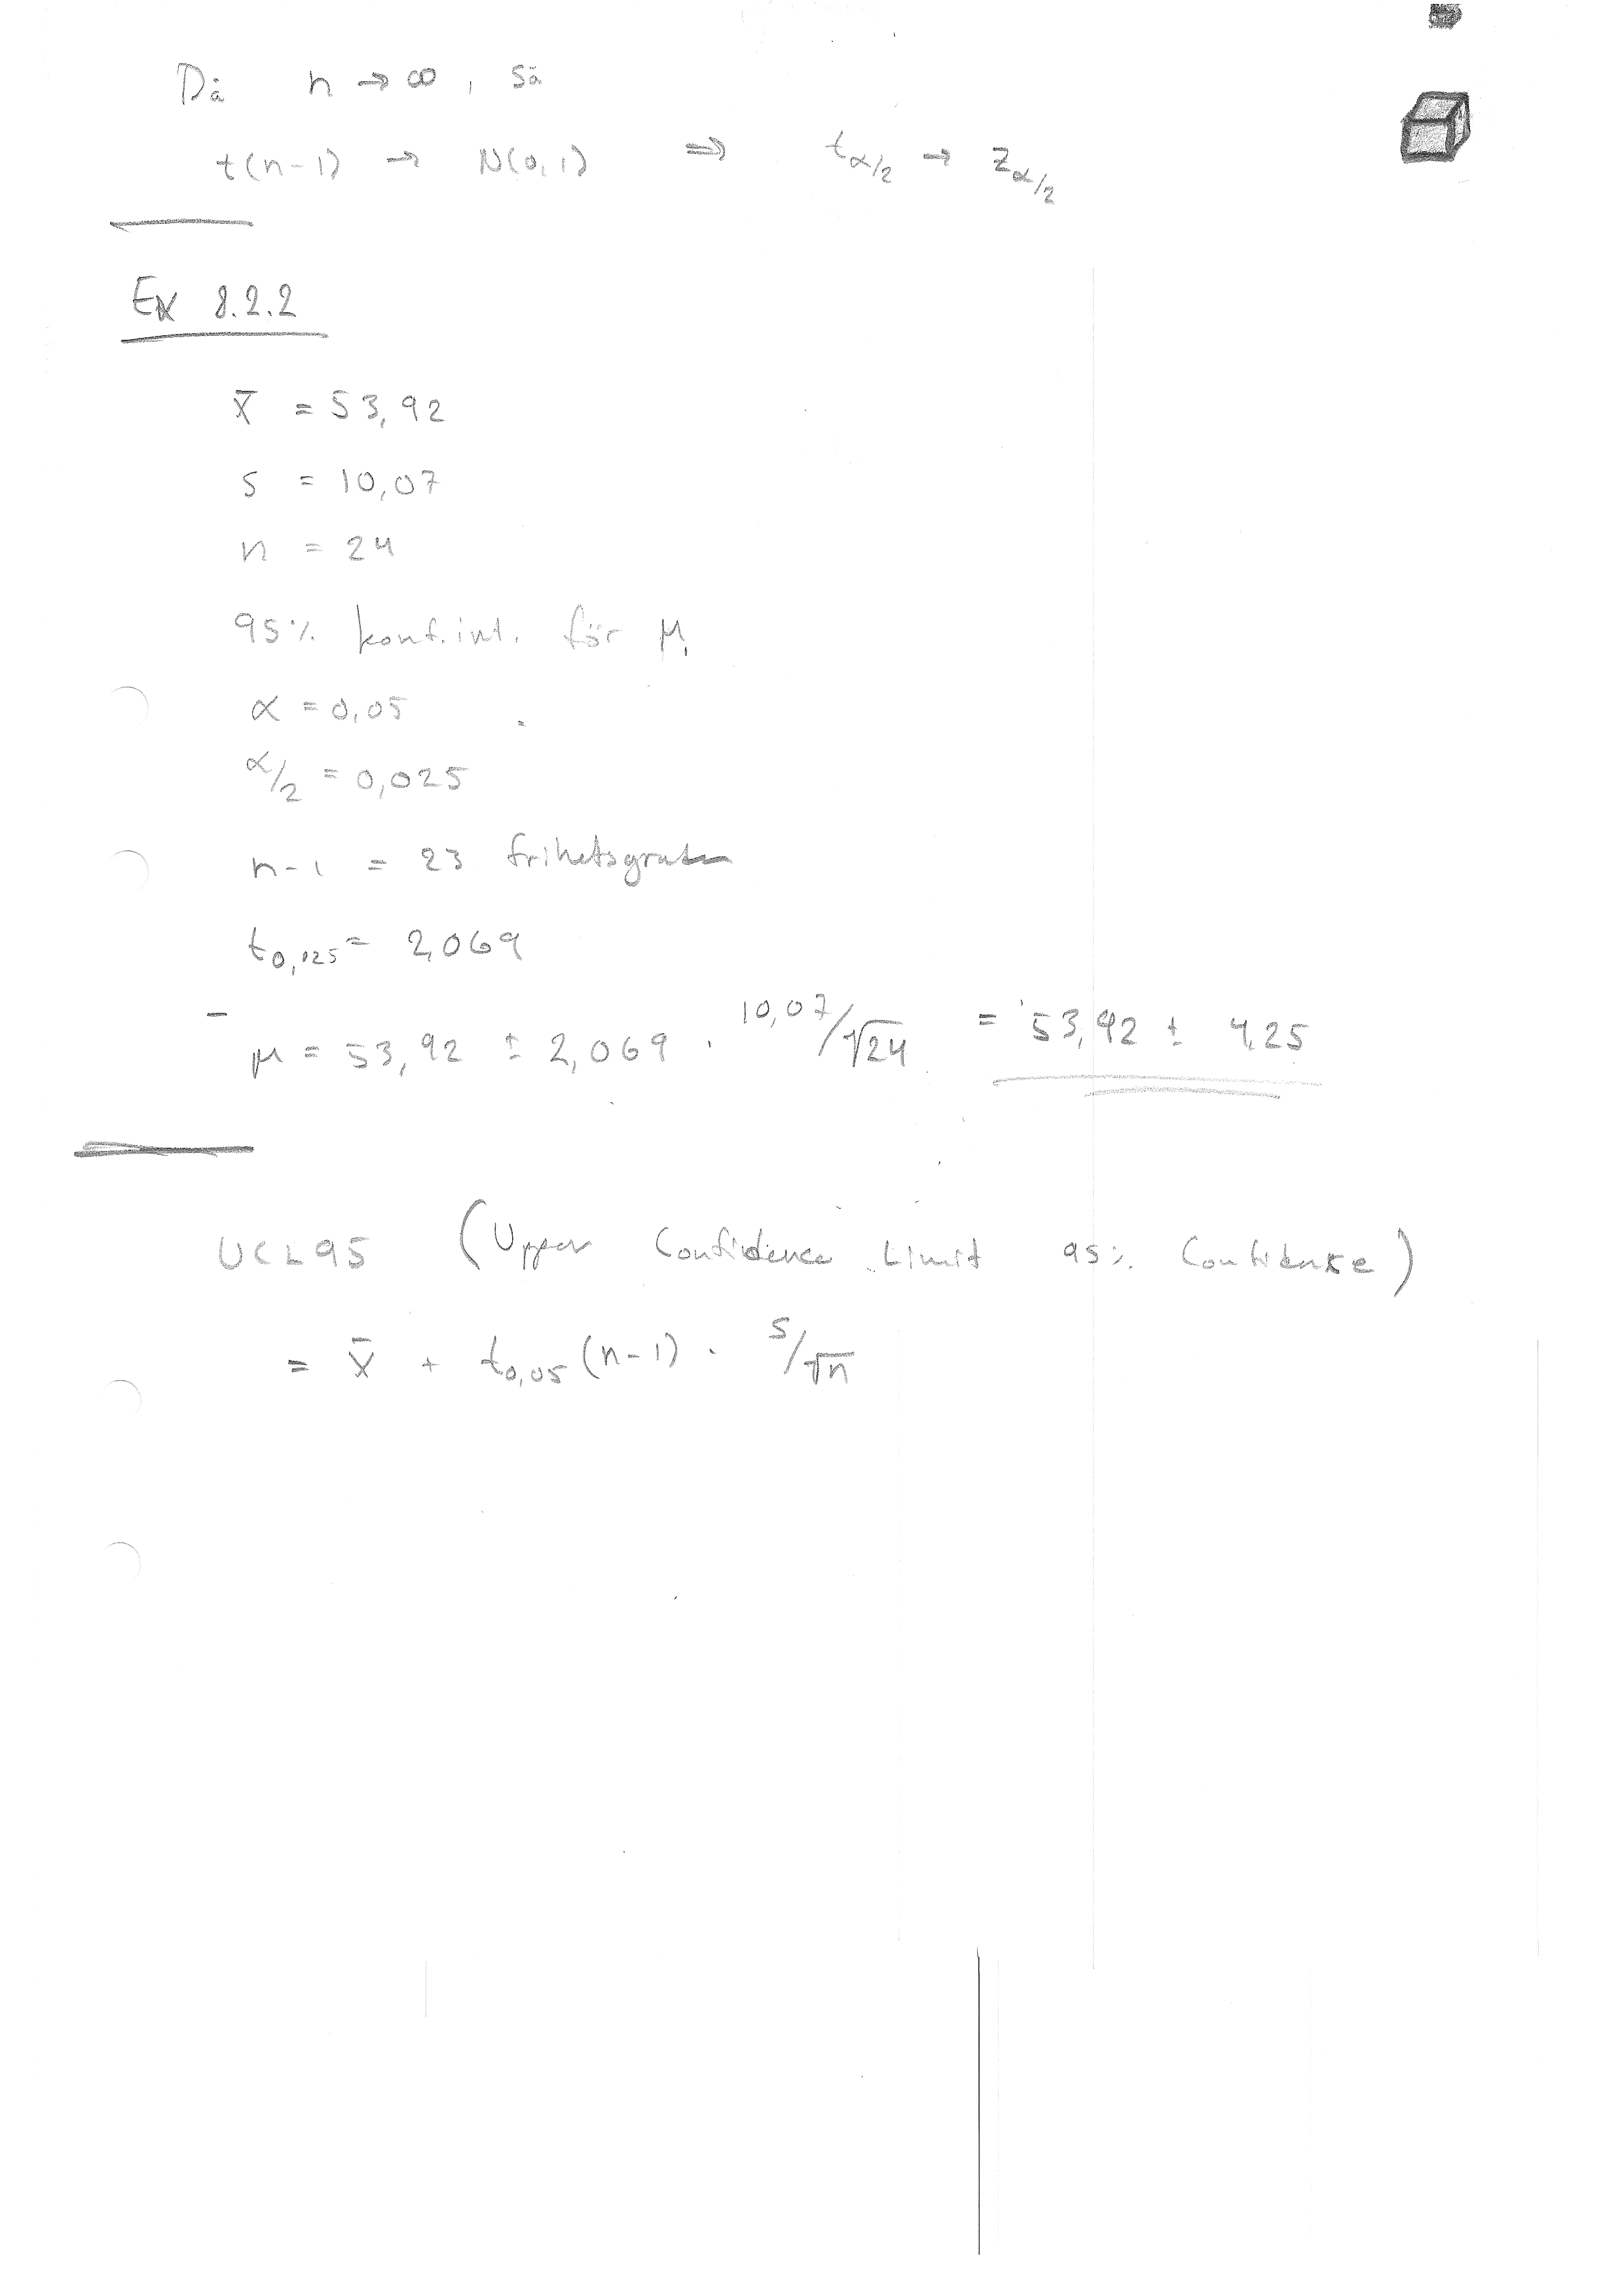 Då n → ∞, så
t(n-1) → N(0,1) ⇒ t_{α/2} → z_{α/2}
Ex 8.2.2
x̄ = 53,92
s = 10,07
n = 24
95% konf.int. för μ,
α = 0,05
α/2 = 0,025
n-1 = 23 frihetsgrader
t_{0,025} = 2,069
μ = 53,92 ± 2,069 · 10,07/√24 = 53,92 ± 4,25
UCL95 (Upper Confidence Limit 95% Confidence)
= x̄ + t_{0,05}(n-1) · s/√n